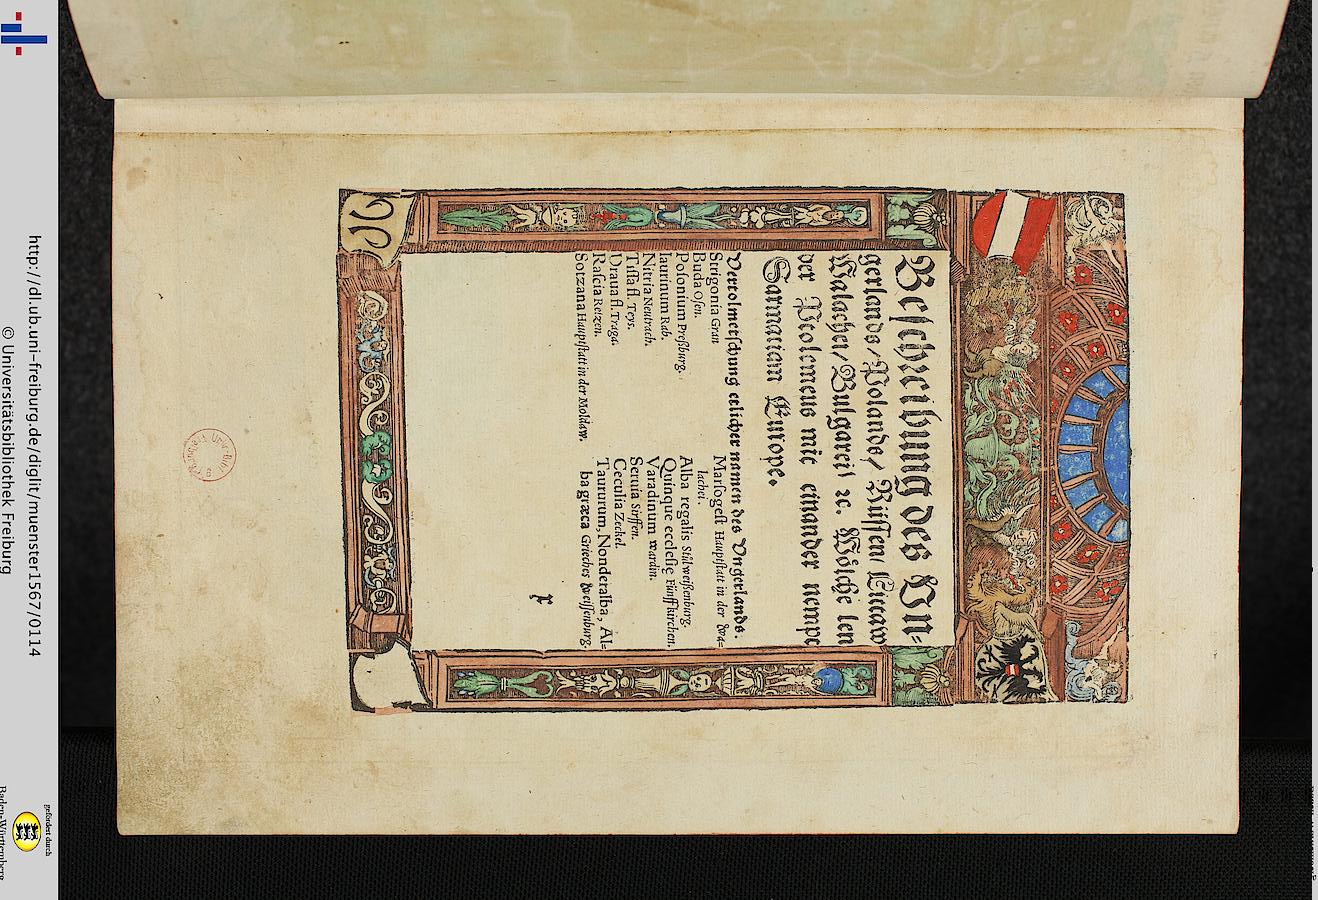 Beschreibung des Un=
gerlands/Polands/ Rüssen/ Littaw
Walachei/Bulgarei/ ꝛc. Wölche len
der Ptolemeus mit einander nempt
Sarmatiam Europe.
Vertolmetschung etlicher namen des Vngerlands.
Strigonia Gran
Buda Ofen.
Posonium Preßburg.
Iaurinum Rab.
Nitria Neutrach.
Tissa fl. Teys.
Draua fl. Traga.
Rascia Retzen.
Sotzana Hauptstatt in der Moldaw.
Marsogest Hauptstatt in der Wa=
lachei.
Alba regalis Stůlweißenburg.
Quinque ecclesie Fünffkirchen.
Varadinum Wardin.
Seruia Sirffen.
Ceculia Zeckel.
Taururum, Nonderalba, Al=
ba græca Griechs Weissenburg.
r
http://dl.ub.uni-freiburg.de/diglit/muenster1567/0114
© Universitätsbibliothek Freiburg
gefördert durch
Baden-Württemberg